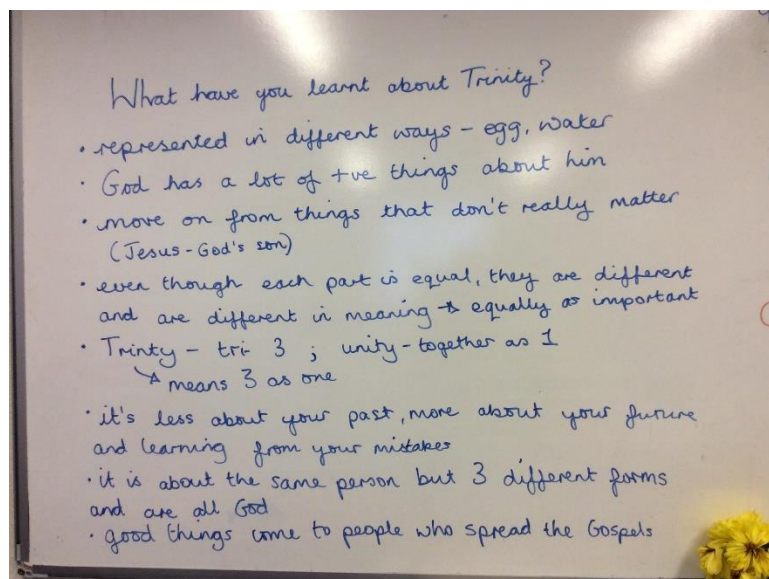 What have you learnt about Trinity?
• represented in different ways - egg, water
• God has a lot of +ve things about him
• move on from things that don't really matter
(Jesus - God's son)
• even though each part is equal, they are different
and are different in meaning → equally as important
• Trinty - tri- 3 ; unity - together as 1
↘ means 3 as one
• it's less about your past, more about your future
and learning from your mistakes
• it is about the same person but 3 different forms
and are all God
• good things come to people who spread the Gospels